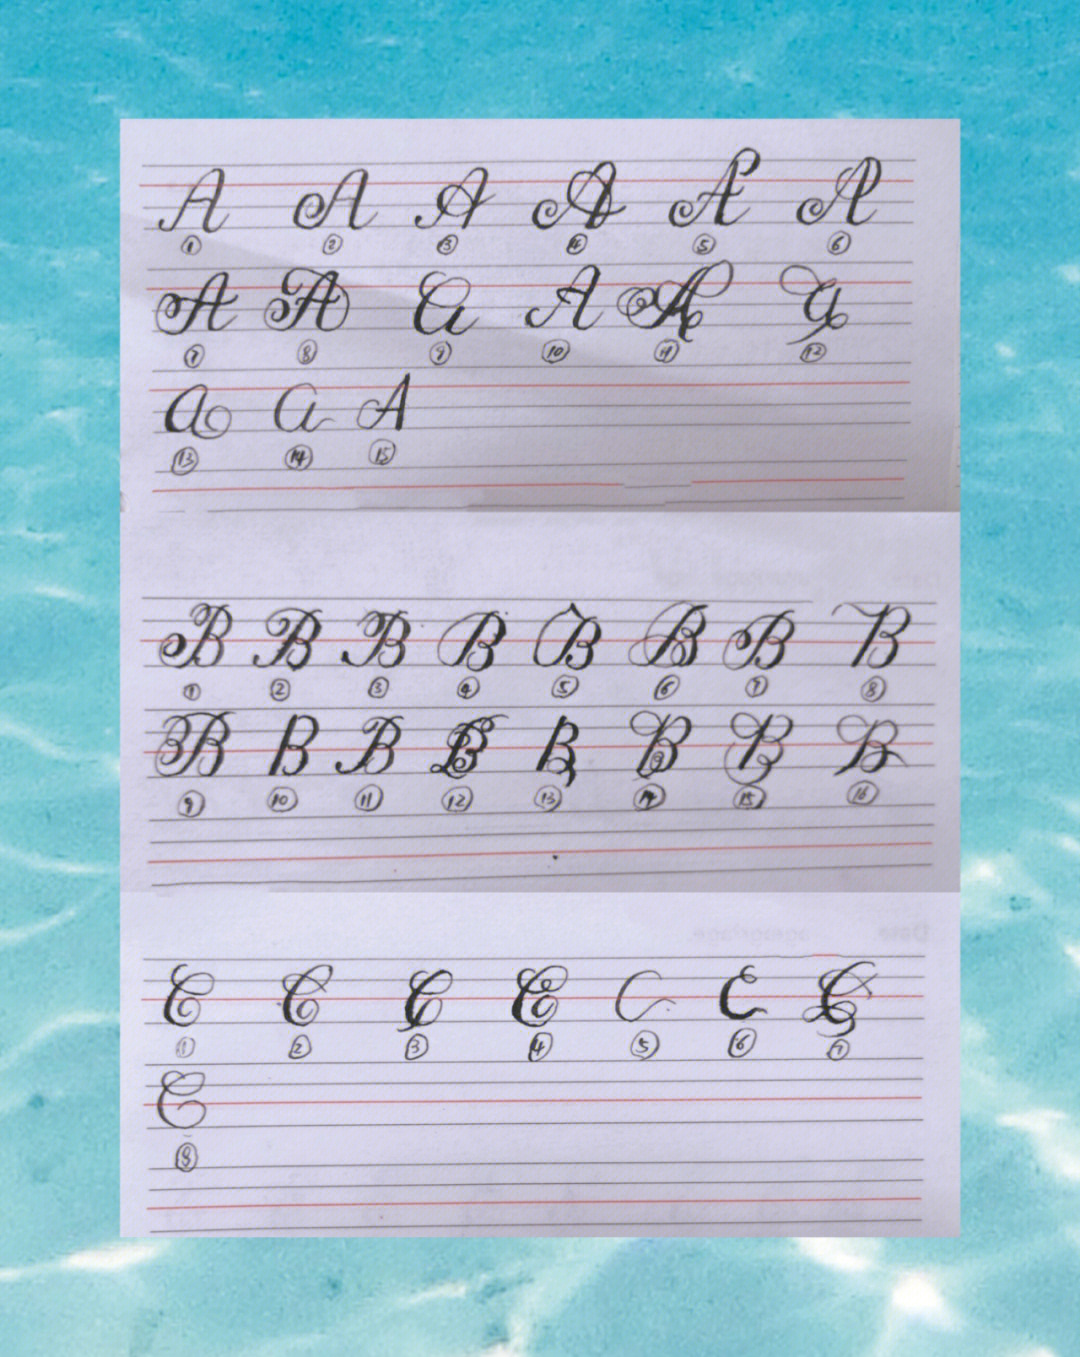 A A A A A A
① ② ③ ④ ⑤ ⑥
A A a A A a
⑦ ⑧ ⑨ ⑩ ⑪ ⑫
a a A
⑬ ⑭ ⑮
B B B B B B B B
① ② ③ ④ ⑤ ⑥ ⑦ ⑧
B B B B B B B B
⑨ ⑩ ⑪ ⑫ ⑬ ⑭ ⑮ ⑯
C C C C C C C
① ② ③ ④ ⑤ ⑥ ⑦
C
⑧